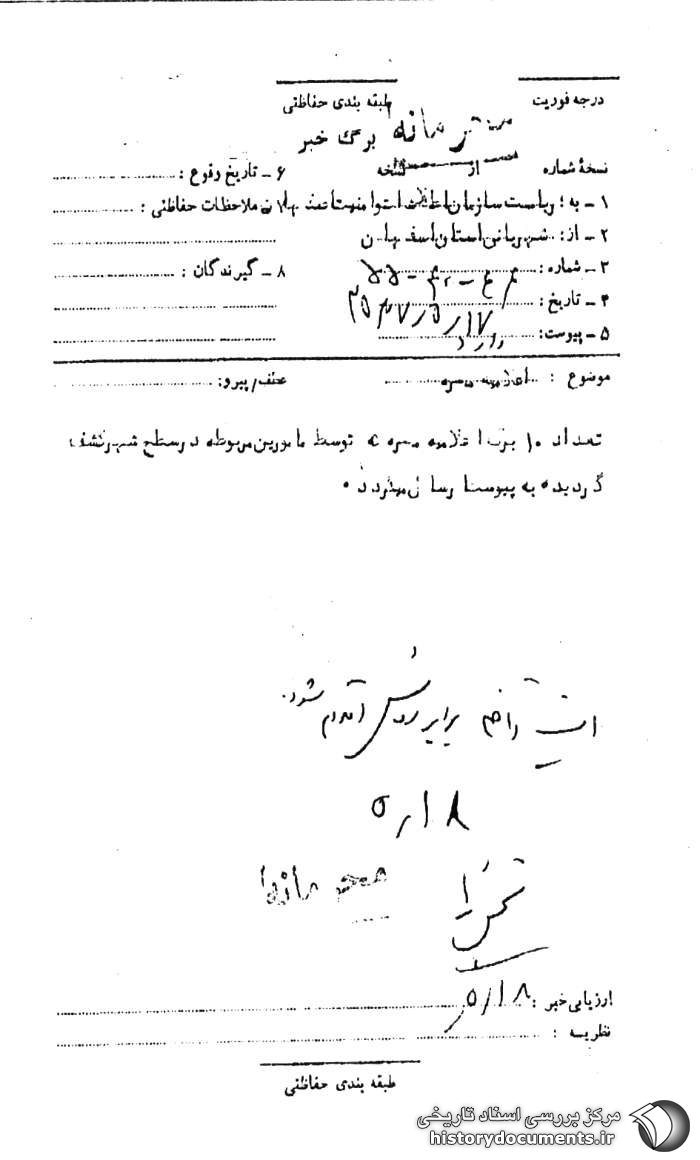 درجه فوریت
طبقه بندی حفاظتی
محرمانه
برگ خبر
نسخهٔ شماره از نسخه
۱ ـ به : ریاست سازمان اطلاعات و امنیت استان اصفهان
۲ ـ از : شهربانی استان اصفهان
۳ ـ شماره :
۴ ـ تاریخ : ۲۵۳۷/۵/۱۷
۵ ـ پیوست : دارد
۶ ـ تاریخ وقوع :
۷ ـ ملاحظات حفاظتی :
۸ ـ گیرندگان :
موضوع : اعلامیه مضره
عطف/پیرو :
تعداد ۱۰ برگ اعلامیه مضره که توسط مامورین مربوطه در سطح شهر کشف
گردیده به پیوست ارسال میگردد .
امنیت داخلی برابر روش اقدام شود.
۵/۱۸
محرمانه
ارزیابی خبر : ۵/۱۸
نظریه :
طبقه بندی حفاظتی
مرکز بررسی اسناد تاریخی
historydocuments.ir